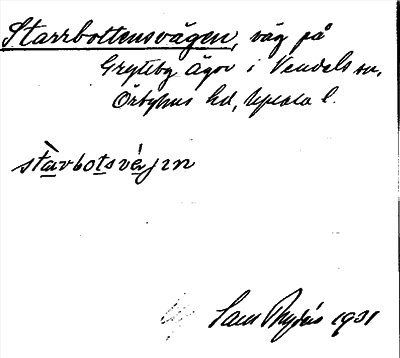 Starrbottensvägen, väg på
Gryttby ägor i Vendels sn,
Örbyhus hd, Upsala l.
stàvbotsvéjɪn
1931